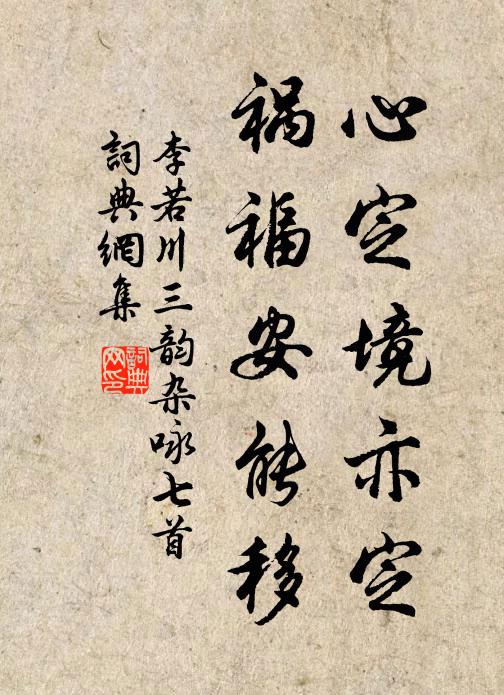 心定境亦定
禍福安能移
李若川三韵杂咏七首
詞典網集
詞典網印